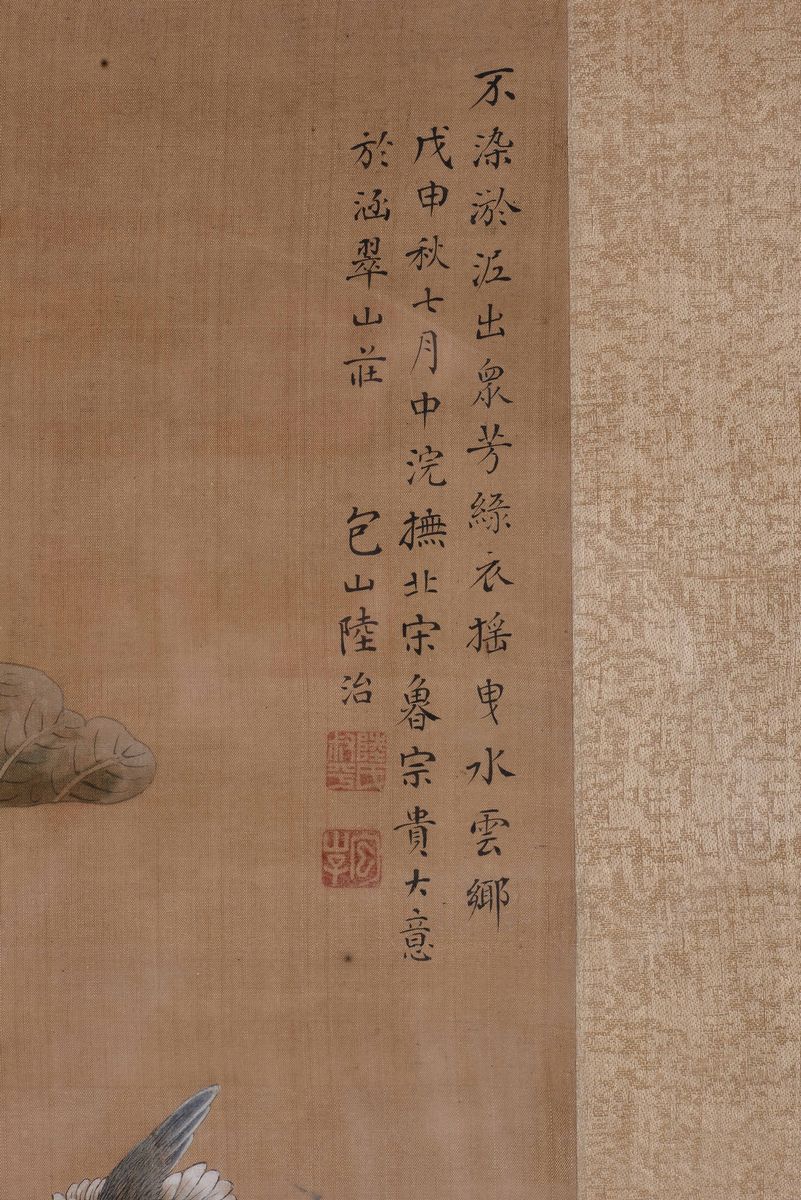 不染淤泥出衆芳綠衣搖曳水雲鄉
戊申秋七月中浣撫北宋魯宗貴大意
於涵翠山莊 包山陸治